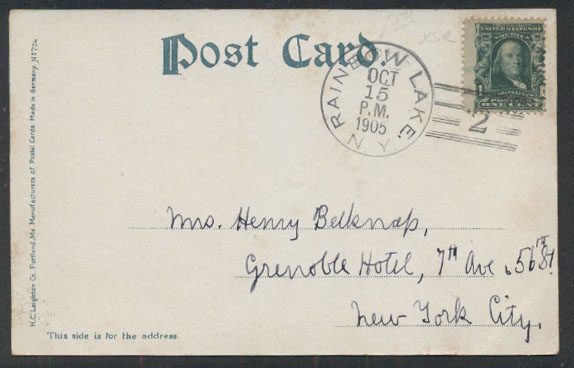 Post Card.
XSR
RAINBOW LAKE
OCT
15
P.M.
1905
N.Y.
2
UNITED STATES OF AMERICA
ONE CENT
Mrs. Henry Belknap,
Grenoble Hotel, 7th Ave & 56th St
New York City.
This side is for the address.
H.C. Leighton Co. Portland, Me. Manufacturers of Postal Cards. Made in Germany. N1754